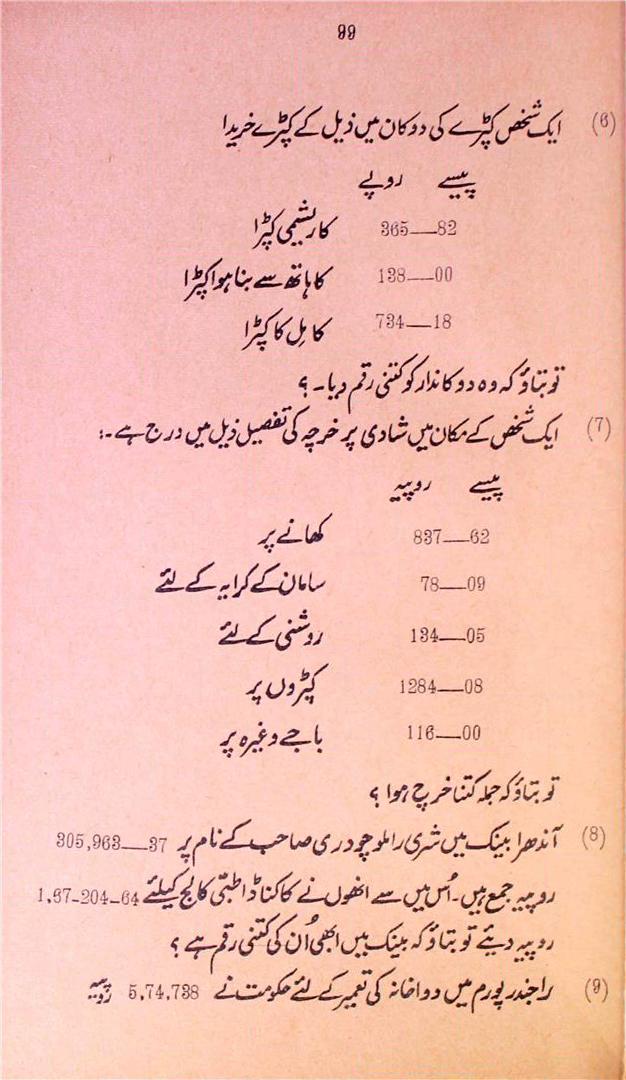 99
(6) ایک شخص کپڑے کی دوکان میں ذیل کے کپڑے خریدا
پیسے روپے
365—82 کا ریشمی کپڑا
138—00 کا ہاتھ سے بنا ہوا کپڑا
734—18 کا مِل کا کپڑا
تو بتاؤ کہ وہ دوکاندار کو کتنی رقم دیا۔ ؟
(7) ایک شخص کے مکان میں شادی پر خرچہ کی تفصیل ذیل میں درج ہے۔:
پیسے روپیہ
837—62 کھانے پر
78—09 سامان کے کرایہ کے لئے
134—05 روشنی کے لئے
1284—08 کپڑوں پر
116—00 باجے وغیرہ پر
تو بتاؤ کہ جملہ کتنا خرچ ہوا ؟
(8) آندھرا بینک میں شری راملو چودری صاحب کے نام پر 305,963—37
روپیہ جمع ہیں۔ اُس میں سے انھوں نے کاکناڈا طبّی کالج کیلئے 1,67-204-64
روپیہ دیئے تو بتاؤ کہ بینک میں ابھی اُن کی کتنی رقم ہے ؟
(9) راجندر پورم میں دواخانہ کی تعمیر کے لئے حکومت نے 5,74,738 روپیہ